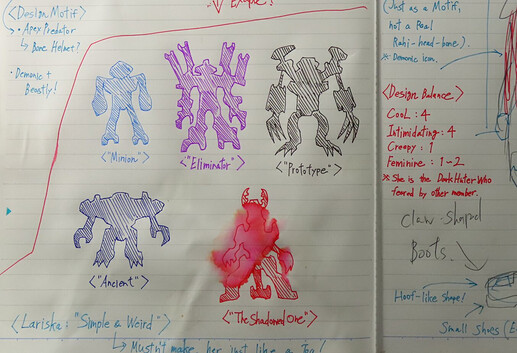 <Design Motif>
→・Apex Predator
↳ Bone Helmet?
・Demonic +
Beastly!
<"Minion">
<"Eliminator">
<"Prototype">
<"Ancient">
<"The Shadowed One">
<Lariska: "Simple & Weird">
↳ Mustn't make her just like a Toa!
(Just as a Motif,
not a Real
Rahi-head-bone).
※ Demonic icon.
<Design Balance>
Cool : 4
Intimidating : 4
Creepy : 1
Feminine : 1~2
※ She is the Dark Hunter who
feared by other member.
Claw-shaped
Boots.
Hoof-like Shape!
Small Shoes